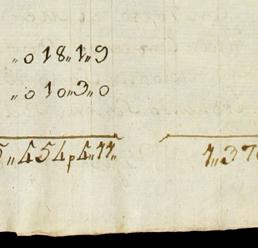 „0 18„1„9
„0 10„3„0
5„454p4„11„ 1„37